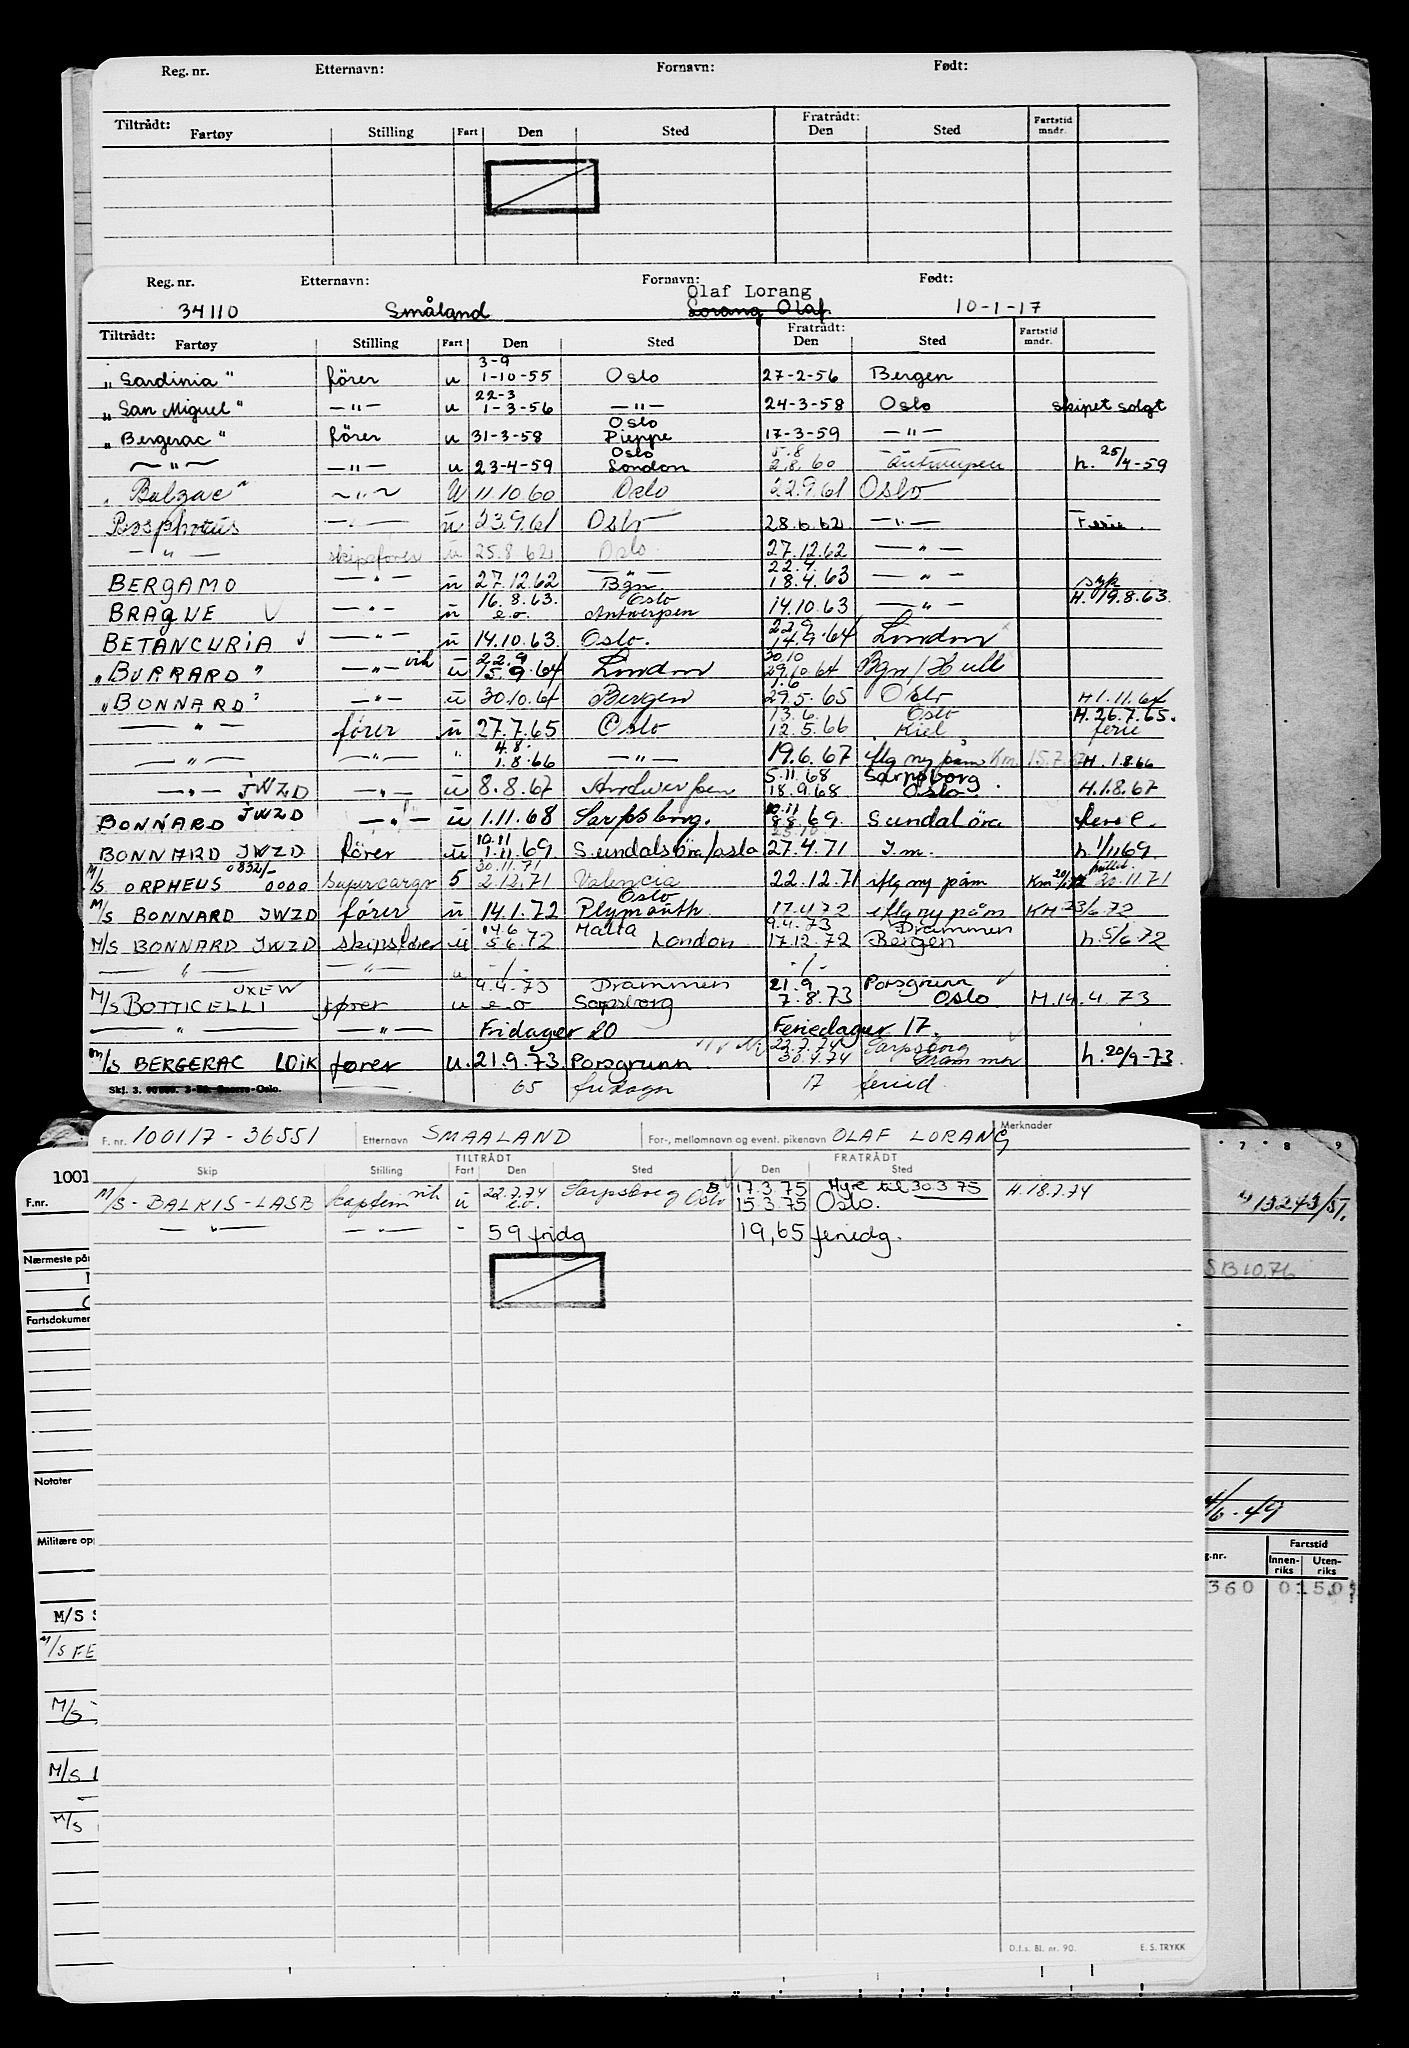 Reg. nr. Etternavn: Fornavn: Født:
Tiltrådt: Fratrådt:
Fartøy Stilling Fart Den Sted Den Sted Fartstid mndr.
Reg. nr. Etternavn: Fornavn: Født:
Olaf Lorang
34110 Småland Lorang Olaf 10-1-17
Tiltrådt: Fratrådt:
Fartøy Stilling Fart Den Sted Den Sted Fartstid mndr.
3-9
"Sardinia" fører u 1-10-55 Oslo 27-2-56 Bergen
22-3
"San Miguel" —"— u 1-3-56 —"— 24-3-58 Oslo skipet solgt
Oslo
"Bergerac" fører u 31-3-58 Dieppe 17-3-59 —"—
Oslo 5.8
—"— —"— u 23-4-59 London 2.8.60 Antwerpen h. 25/4-59
"Balzac" —"— u 11.10.60 Oslo 22.9.61 Oslo
Bosphorus —"— u 23.9.61 Oslo 28.6.62 —"— Ferie.
—"— skipsfører u 25.8.62 Oslo. 27.12.62 —"—
22.4.
BERGAMO —"— u 27.12.62 Bgn 18.4.63 —"— syk
16.8.63. Oslo H. 19.8.63.
BRAGUE —"— u e.o. Antwerpen 14.10.63 —"—
22.9
BETANCURIA —"— u 14.10.63 Oslo. 14.9.64 London
22.9 30.10
"BURRARD" —"— vik u 15.9.64 London 29.10.64 Bgn/Hull
1.6
"BONNARD" —"— u 30.10.64 Bergen 29.5.65 Oslo H 1.11.64
13.6. Oslo H. 26.7.65.
—"— fører u 27.7.65 Oslo 12.5.66 Kiel ferie
4.8.
—"— —"— " 1.8.66 —"— 19.6.67 iflg ny påm Km 15.7.67 H. 1.8.66
5.11.68 Sarpsborg
—"— JWZD —"— u 8.8.67 Antwerpen 18.9.68 Oslo. H. 1.8.67
10.11
BONNARD JWZD —"— u 1.11.68 Sarpsborg. 8.8.69. Sundalsöra ferie.
10.11 25.10
BONNARD JWZD fører u 1.11.69 Sundalsöra/Oslo 27.4.71 I.m. h. 1/11 69.
0832/- 30.11.71
M/S ORPHEUS 0000 Supercargo 5 2.12.71 Valencia 22.12.71 iflg ny påm Km 20/1 72 20.11.71
Oslo
M/S BONNARD JWZD fører u 14.1.72 Plymouth 17.4.72 iflg ny påm KM 23/6.72
14.6 Malta 9.4.73 Drammen
M/S BONNARD JWZD skipsfører u 5.6.72 London 17.12.72 Bergen h. 5/6.72
—"— —"— u -/- -/-
JXEW 4.4.73 Drammen 21.9. Porsgrunn
M/S BOTTICELLI fører u e.o Sarpsborg 7.8.73 Oslo M. 14.4.73
—"— —"— Fridager 20 Feriedager 17.
22.7.74 Sarpsborg
M/S BERGERAC LDIK fører u. 21.9.73. Porsgrunn 30.4.74 Drammen h. 20/9-73.
Skj. 3.
65 fridagr 17 feried.
F. nr. 100117-36551 Etternavn SMAALAND For-, mellomnavn og event. pikenavn OLAF LORANG Merknader
TILTRÅDT FRATRÅDT
Skip Stilling Fart Den Sted Den Sted
M/S-BALKIS-LASB Kaptein vik u 22.7.74 Sarpsborg 17.3.75 Hyre til 30.3.75 H. 18.7.74
e.o. Oslo 15.3.75 Oslo.
—"— —"— - 59 fridg 19,65 feriedg.
D.f.s. Bl. nr. 90. E. S. TRYKK
1001
F.nr.
Nærmeste på
Fartsdokumen
Notater
Militære opp
M/S S
M/S FE
M/S
M/S
M/S
7 8 9
13243/51.
SB10.76
4/6-49
g.nr. Fartstid
Innen-riks Uten-riks
360 015.0